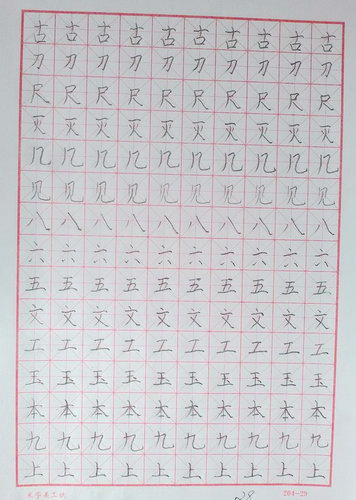 古古古古古古古古古古
刀刀刀刀刀刀刀刀刀刀
尺尺尺尺尺尺尺尺尺尺
灭灭灭灭灭灭灭灭灭灭
几几几几几几几几几几
见见见见见见见见见见
八八八八八八八八八八
六六六六六六六六六六
五五五五五五五五五五
文文文文文文文文文文
工工工工工工工工工工
玉玉玉玉玉玉玉玉玉玉
本本本本本本本本本本
九九九九九九九九九九
上上上上上上上上上上
28 204-29